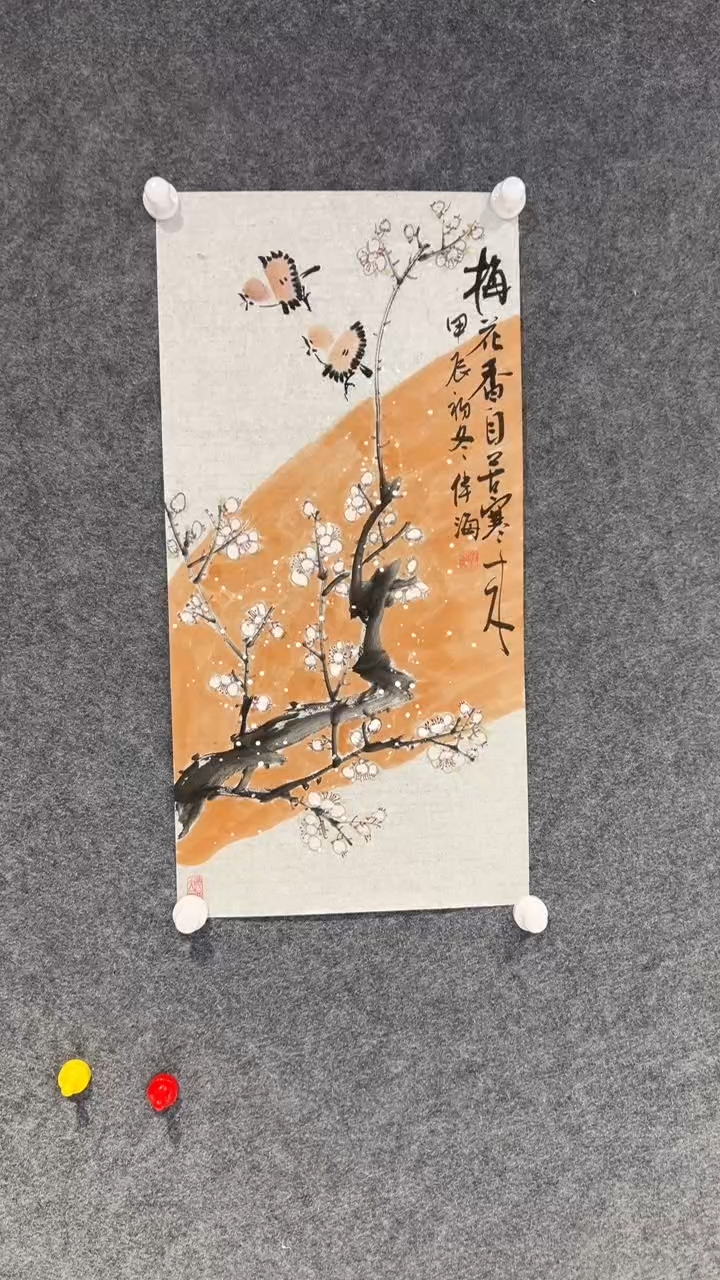 梅花香自苦寒来
甲辰初冬 伟海